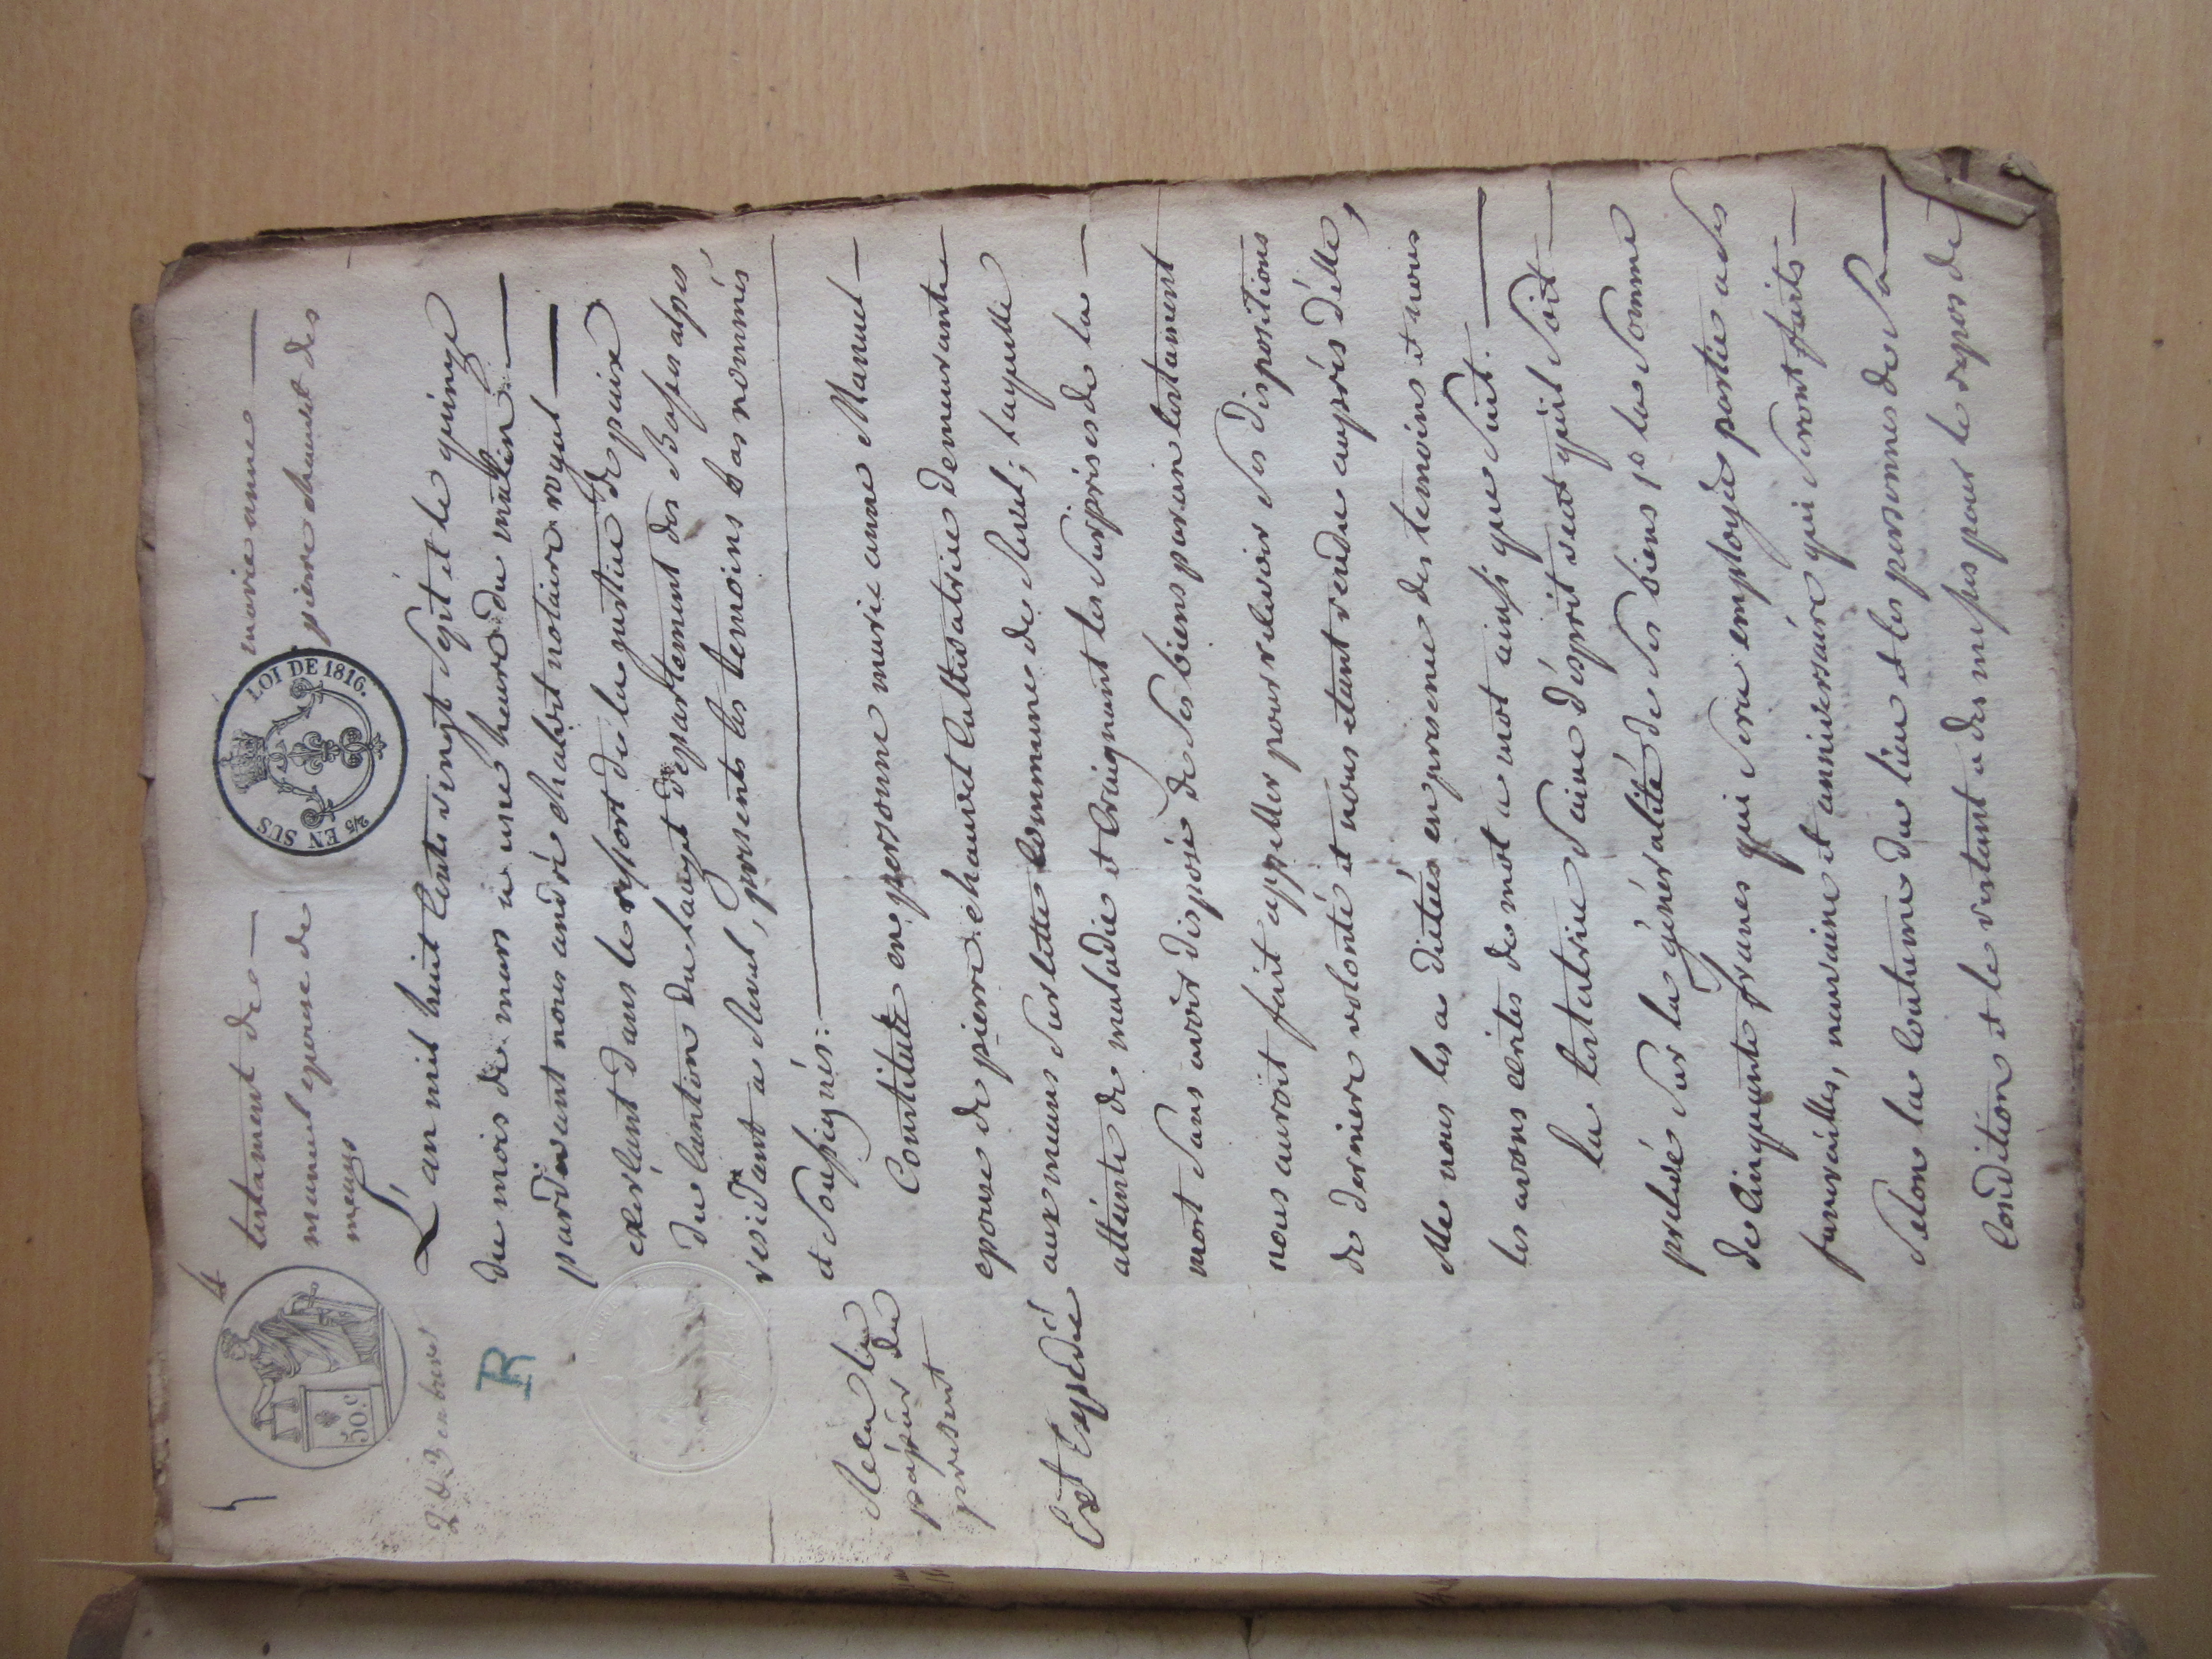 4
50.c
2/5 EN SUS
LOI DE 1816.
testament de — marie anne —
manuel epouse de pierre chauvet des
meuns
R
L'an mil huit Cents vingt Sept et le quinze
du mois de mars à une heure du matin —
pardevant nous andré chabot notaire royal —
exerçant dans le ressort de la justice de paix
du Canton du Lauzet département des Basses alpes,
residant a Revel, presents les temoins bas nommés
et Soussignés: —
Constituée en personne marie anne Manuel —
epouse de pierre chauvet Cultivatrice demeurante
aux meuns Surlette Commune de Revel; laquelle
attéinte de maladie et Craignant les Surprises de la —
mort Sans avoir disposé de Ses biens par un testament
nous auroit fait appeller pour relevoir Ses dispositions
de derniere volonté et nous etant rendu auprés d'elle,
elle nous les a dictées en presence des temoins et nous
les avons ecrites de mot a mot ainsi que Suit. —
La testatrice Saine d'esprit veut qu'il Soit —
prelevé Sur la généralité de Ses biens 1° la Somme
de Cinquante francs qui Sera employée partie a Ses
funerailles, neuvaine et anniversaire qui Seront faits —
Selon la Coutume du lieu et les personnes de Sa —
Condition et le restant a des messes pour le repos de
papier du
present
Est Expedié